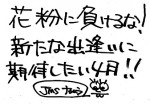 花粉に負けるな!
新たな出逢いに
期待したい4月!!